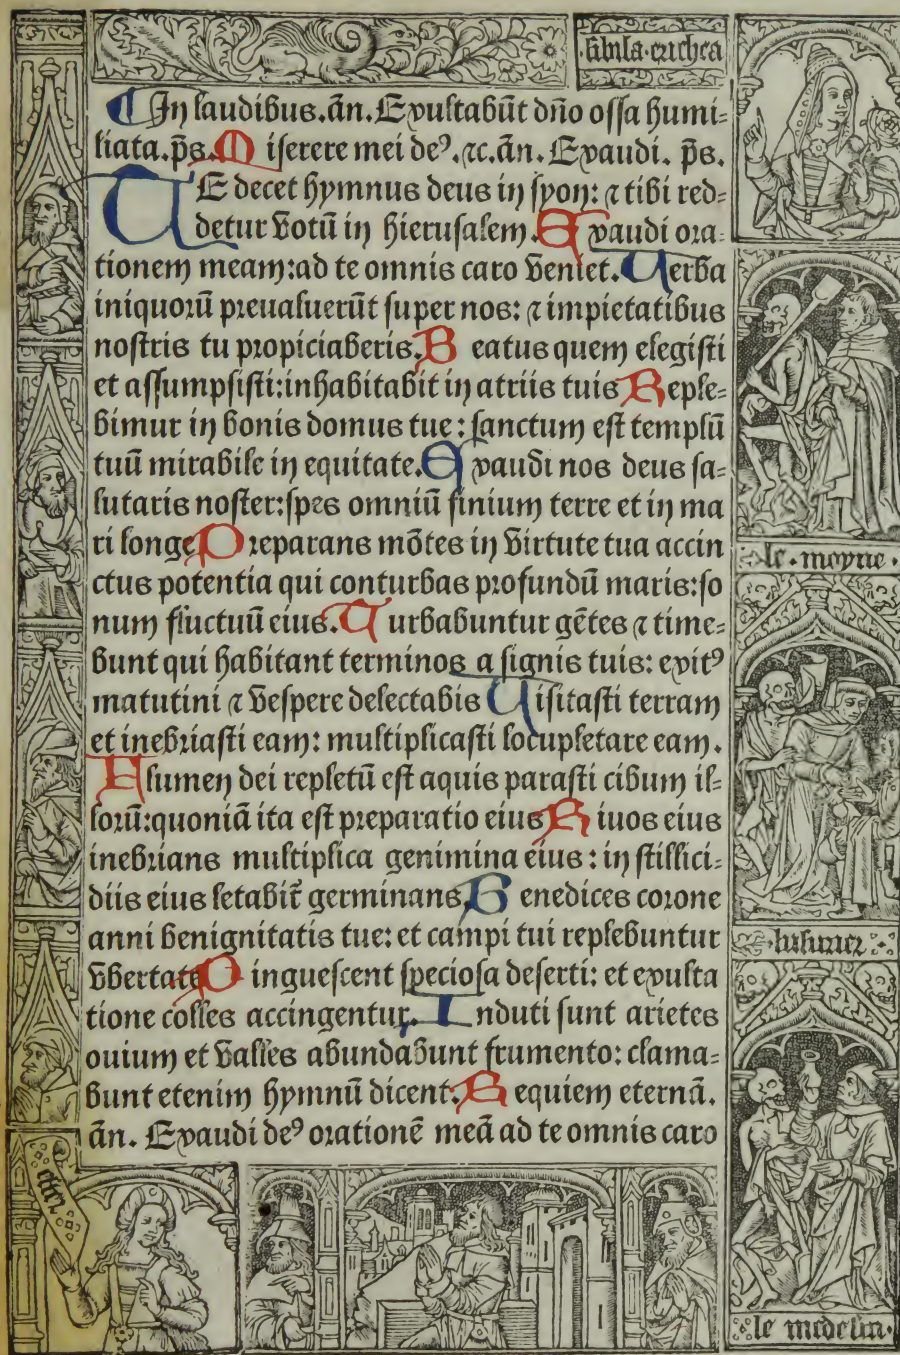 sibila·erithea
¶ In laudibus.añ. Exultabūt dño ossa humi-
liata.p̄s. Miserere mei deꝰ.⁊c.añ. Exaudi. p̄s.
TE decet hymnus deus in syon: ⁊ tibi red-
detur votū in hierusalem. Exaudi ora-
tionem meam:ad te omnis caro veniet. Verba
iniquorū preualuerūt super nos: ⁊ impietatibus
nostris tu propiciaberis. Beatus quem elegisti
et assumpsisti:inhabitabit in atriis tuis Reple-
bimur in bonis domus tue: sanctum est templū
tuū mirabile in equitate. Exaudi nos deus sa-
lutaris noster:spes omniū finium terre et in ma
ri longe Preparans mōtes in virtute tua accin
ctus potentia qui conturbas profundū maris:so
num fluctuū eius. Turbabuntur gētes ⁊ time-
bunt qui habitant terminos a signis tuis: exitꝰ
matutini ⁊ vespere delectabis Uisitasti terram
et inebriasti eam: multiplicasti locupletare eam.
Flumen dei repletū est aquis parasti cibum il-
lorū:quoniā ita est preparatio eius Riuos eius
inebrians multiplica genimina eius: in stillici-
diis eius letabit̄ germinans. Benedices corone
anni benignitatis tue: et campi tui replebuntur
vbertate Pinguescent speciosa deserti: et exulta
tione colles accingentur. Induti sunt arietes
ouium et valles abundabunt frumento: clama-
bunt etenim hymnū dicent. Requiem eternā.
añ. Exaudi deꝰ orationē meā ad te omnis caro
le·moyne·
lusurier
le medesin·